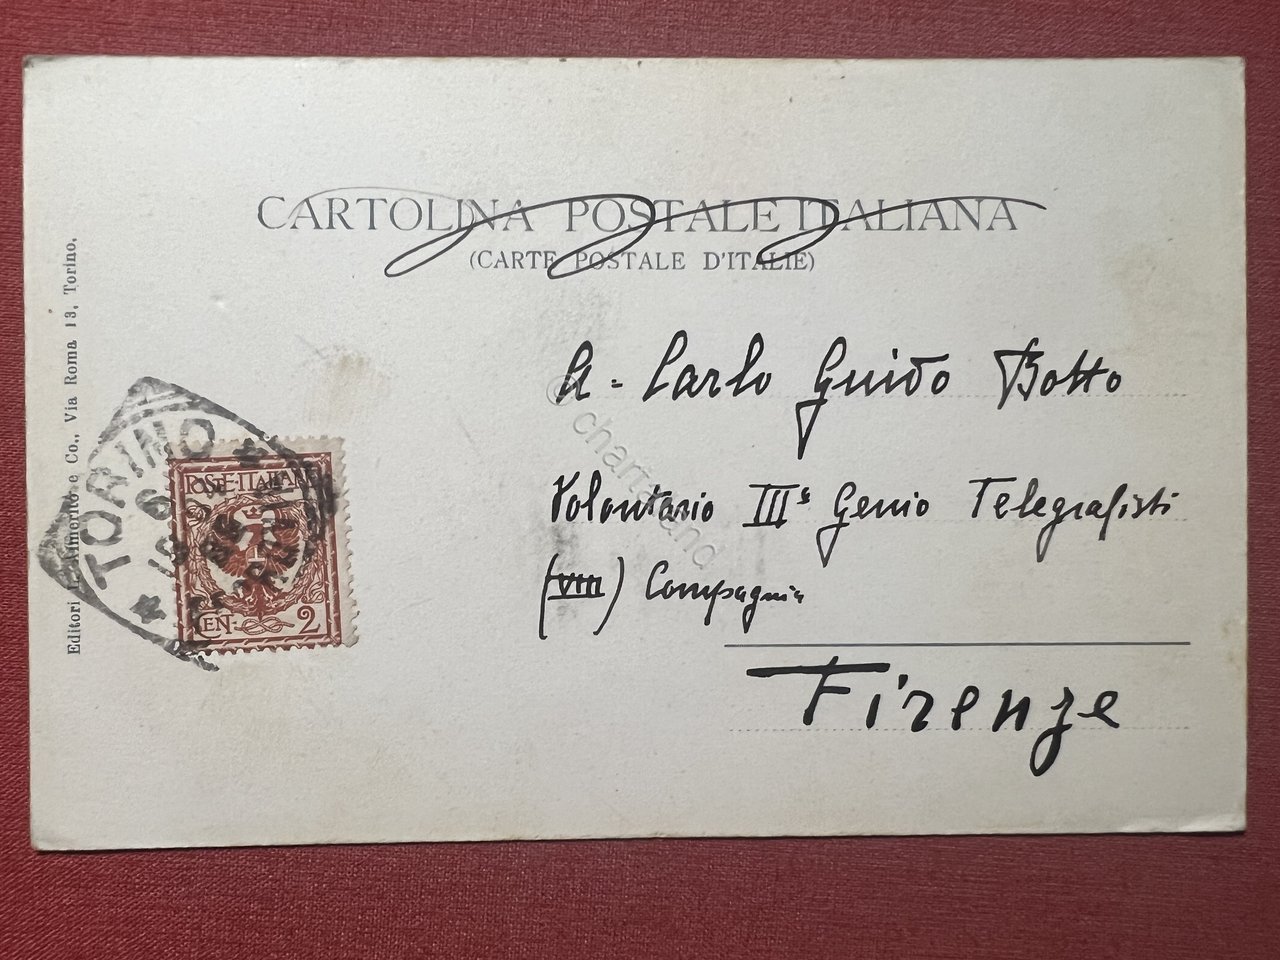 CARTOLINA POSTALE ITALIANA
(CARTE POSTALE D'ITALIE)
A - Carlo Guido Botto
Volontario III° Genio Telegrafisti
(VIII) Compagnia
Firenze
Editori Almorito e Co., Via Roma 13, Torino.
TORINO
POSTE·ITALIANE
CEN. 2
© chartaland